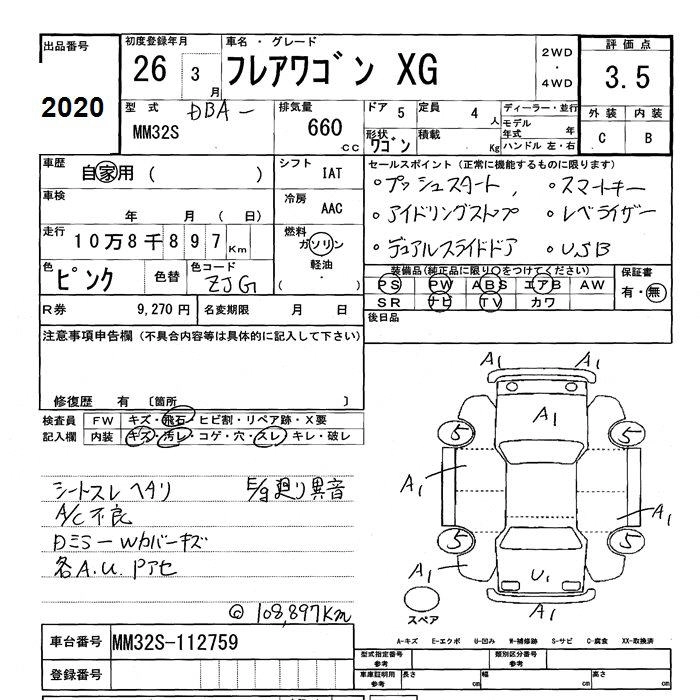 出品番号 初度登録年月 車名・グレード 2WD・4WD 評価点
2020 26 3月 フレアワゴン XG 3.5
型式 DBA- 排気量 ドア 5 定員 4人 ディーラー・並行 外装 内装
MM32S 660cc 形状 ワゴン 積載 Kg モデル年式 年 C B
ハンドル 左・右
車歴 自家用 ( ) シフト IAT セールスポイント(正常に機能するものに限ります)
車検 年 月 ( 日) 冷房 AAC ・プッシュスタート、 ・スマートキー
・アイドリングストップ ・レベライザー
走行 10万8千897Km 燃料 ガソリン ・デュアルスライドドア ・USB
軽油・( )
色 ピンク 色替 色コード ZJG 装備品(純正品に限り○をつけてください) 保証書
PS PW ABS エアB AW 有・無
SR ナビ TV カワ
R券 9,270円 名変期限 月 日 後日品
注意事項申告欄(不具合内容等は具体的に記入して下さい)
修復歴 有 〔箇所 〕
検査員 FW キズ・飛石・ヒビ割・リペア跡・X要
記入欄 内装 キズ・汚レ・コゲ・穴・スレ・キレ・破レ
シートスレ ヘタリ E/g廻り異音
A/C不良
DミラーWカバーキズ
各A.U.Pアセ
◎ 108,897Km
A1 A1
A1
5 5
A1 A1
5 5
A1 U1
A1
スペア
A-キズ E-エクボ U-凹み W-補修跡 S-サビ C-腐食 XX-取換済
車台番号 MM32S-112759 型式指定番号 参考 類別区分番号 参考
登録番号 車庫証明用 参考 長さ cm 幅 cm 高さ cm